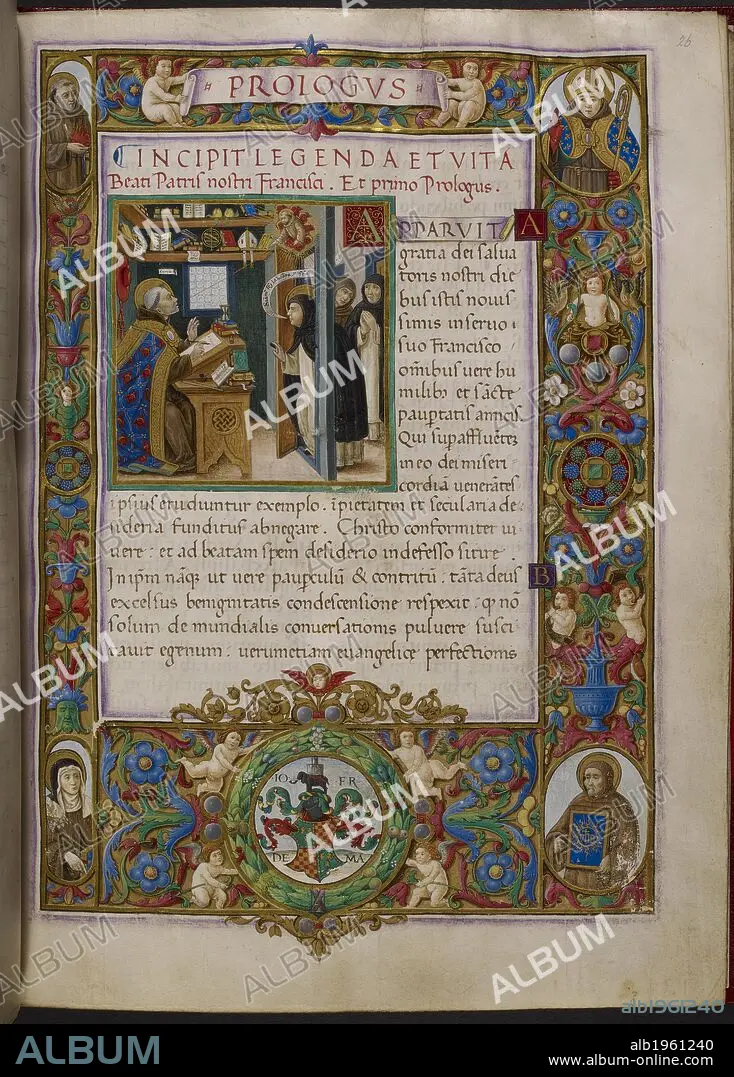 26
PROLOGVS
INCIPIT LEGENDA ET VITA
Beati Patris nostri Francisci . Et primo Prologus .
APPARVIT A
gratia dei salua
toris nostri die
bus istis nouis
simis in seruo
suo Francisco
omibus uere hu
milib et scte
paupertatis amicis
Qui
in eo dei miseri
cordia uenerates
ipsius erudiuntur exemplo . ipietatem et secularia de
sideria funditus abnegare . Christo conformiter ui
uere : et ad beatam spem desiderio indefesso sitire .
In ipm naq ut uere pauperculu & contritu . tata deus B
excelsus benignitatis condescensione respexit : q no
solum de mundialis conuersationis puluere susci
tauit egenum . uerumetiam euangelice perfectionis
IO FR
DE MA
ALBUM
alb1961240
ALBUM
alb1961240
www.album-online.com